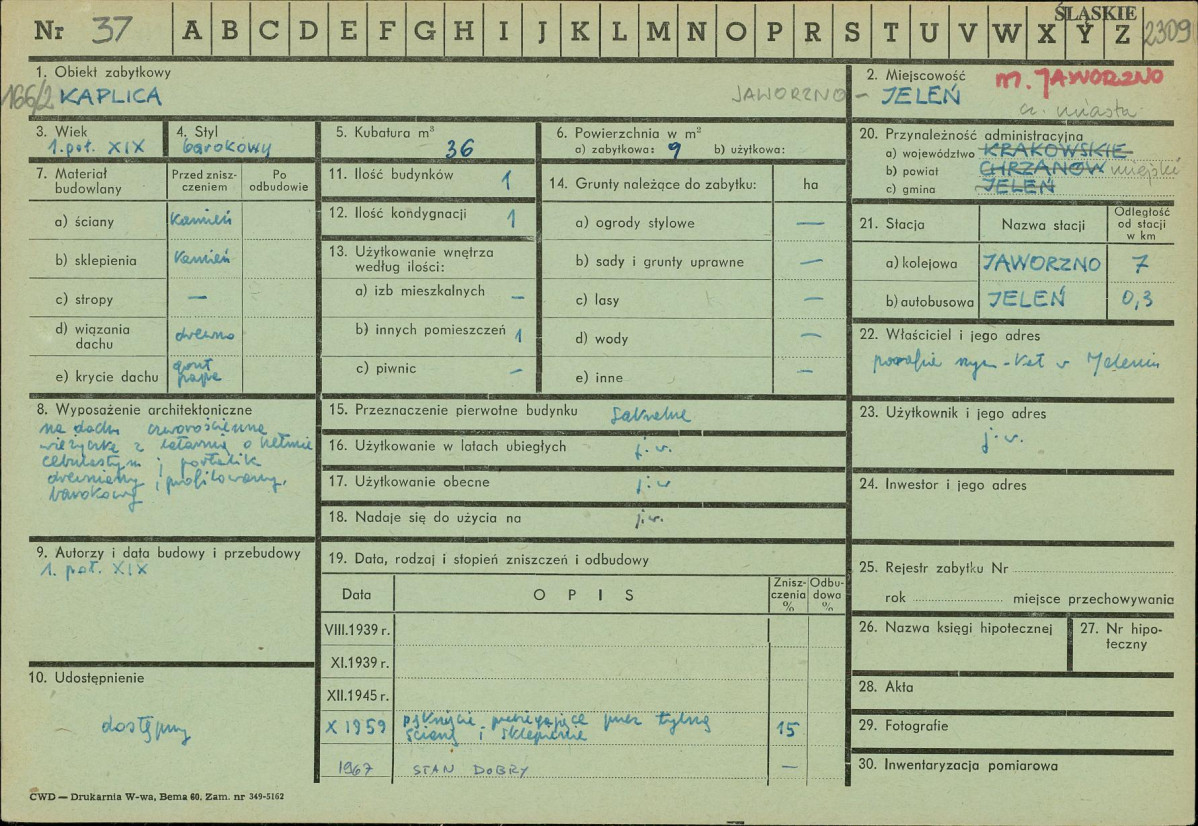 Nr 37 A B C D E F G H I J K L M N O P R S T U V W X Y Z ŚLĄSKIE 2309
1. Obiekt zabytkowy
166/2 KAPLICA JAWORZNO –
2. Miejscowość m. JAWORZNO
JELEŃ cz. miasta
3. Wiek
1. poł. XIX
4. Styl
barokowy
5. Kubatura m³
36
6. Powierzchnia w m²
a) zabytkowa: 9 b) użytkowa:
20. Przynależność administracyjna
a) województwo KRAKOWSKIE
b) powiat CHRZANÓW miejski
c) gmina JELEŃ
7. Materiał budowlany
Przed znisz-
czeniem
Po
odbudowie
a) ściany kamień
b) sklepienia kamień
c) stropy —
d) wiązania
dachu drewno
e) krycie dachu gont
papa
11. Ilość budynków 1
12. Ilość kondygnacji 1
13. Użytkowanie wnętrza
według ilości:
a) izb mieszkalnych –
b) innych pomieszczeń 1
c) piwnic –
14. Grunty należące do zabytku: ha
a) ogrody stylowe —
b) sady i grunty uprawne —
c) lasy —
d) wody —
e) inne —
21. Stacja Nazwa stacji Odległość
od stacji
w km
a) kolejowa JAWORZNO 7
b) autobusowa JELEŃ 0,3
22. Właściciel i jego adres
parafia rzym-kat w Jeleniu
8. Wyposażenie architektoniczne
na dachu czworościenna
wieżyczka z latarnią o hełmie
cebulastym i portalik
drewniany i profilowany,
barokowy
15. Przeznaczenie pierwotne budynku sakralne
16. Użytkowanie w latach ubiegłych j.w.
17. Użytkowanie obecne j.w
18. Nadaje się do użycia na j.w.
23. Użytkownik i jego adres
j.w.
24. Inwestor i jego adres
9. Autorzy i data budowy i przebudowy
1. poł. XIX
19. Data, rodzaj i stopień zniszczeń i odbudowy
Data OPIS Znisz-
czenia
% Odbu-
dowa
%
VIII.1939 r.
XI.1939 r.
XII.1945 r.
X 1959 pęknięcie przebiegające przez tylną
ścianę i sklepienie 15
1967 STAN DOBRY —
25. Rejestr zabytku Nr
rok miejsce przechowywania
26. Nazwa księgi hipotecznej
27. Nr hipo-
teczny
28. Akta
29. Fotografie
30. Inwentaryzacja pomiarowa
10. Udostępnienie
dostępny
CWD — Drukarnia W-wa, Bema 60. Zam. nr 349-5162